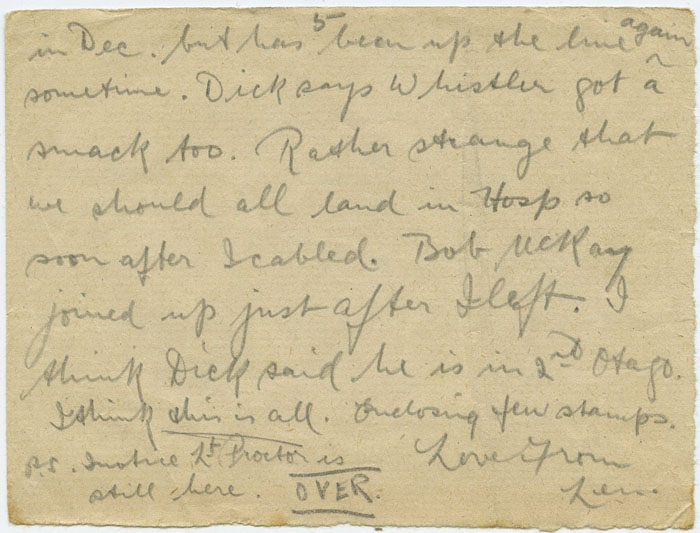 5
in Dec. but has been up the line again
sometime. Dick says Whistler got a
smack too. Rather strange that
we should all land in Hosp so
soon after I cabled. Bob McKay
joined up just after I left. I
think Dick said he is in 2nd Otago.
I think this is all. Enclosing few stamps.
Love from
Len.
P.S. I notice Lt Proctor is
still here. OVER.